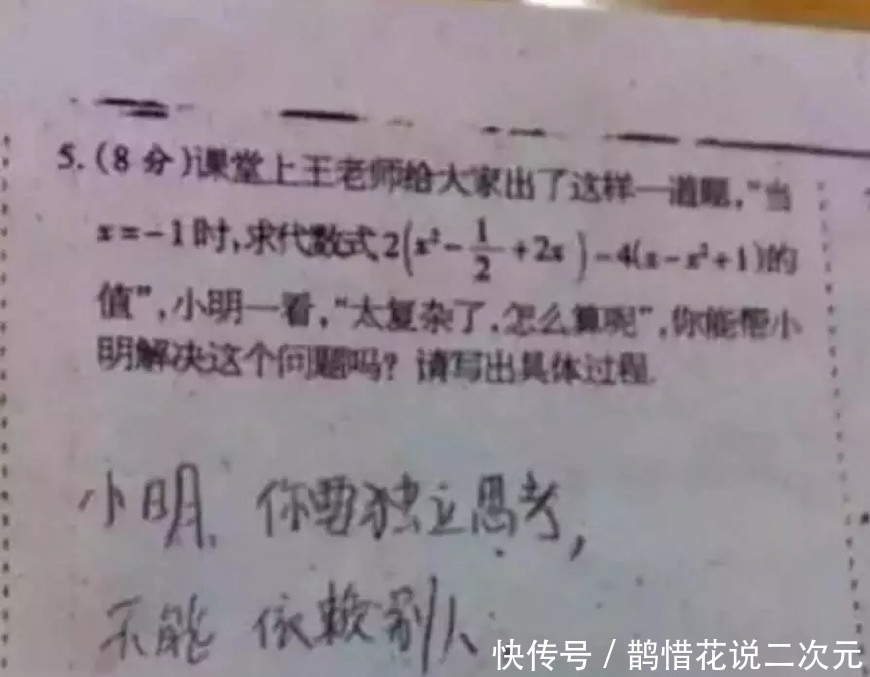 5.(8分)课堂上王老师给大家出了这样一道题,"当
x=-1时,求代数式2(x²-1/2+2x)-4(x-x²+1)的
值",小明一看,"太复杂了,怎么算呢",你能帮小
明解决这个问题吗?请写出具体过程.
小明、你要独立思考,
不能 依赖别人.
快传号 / 鹊惜花说二次元